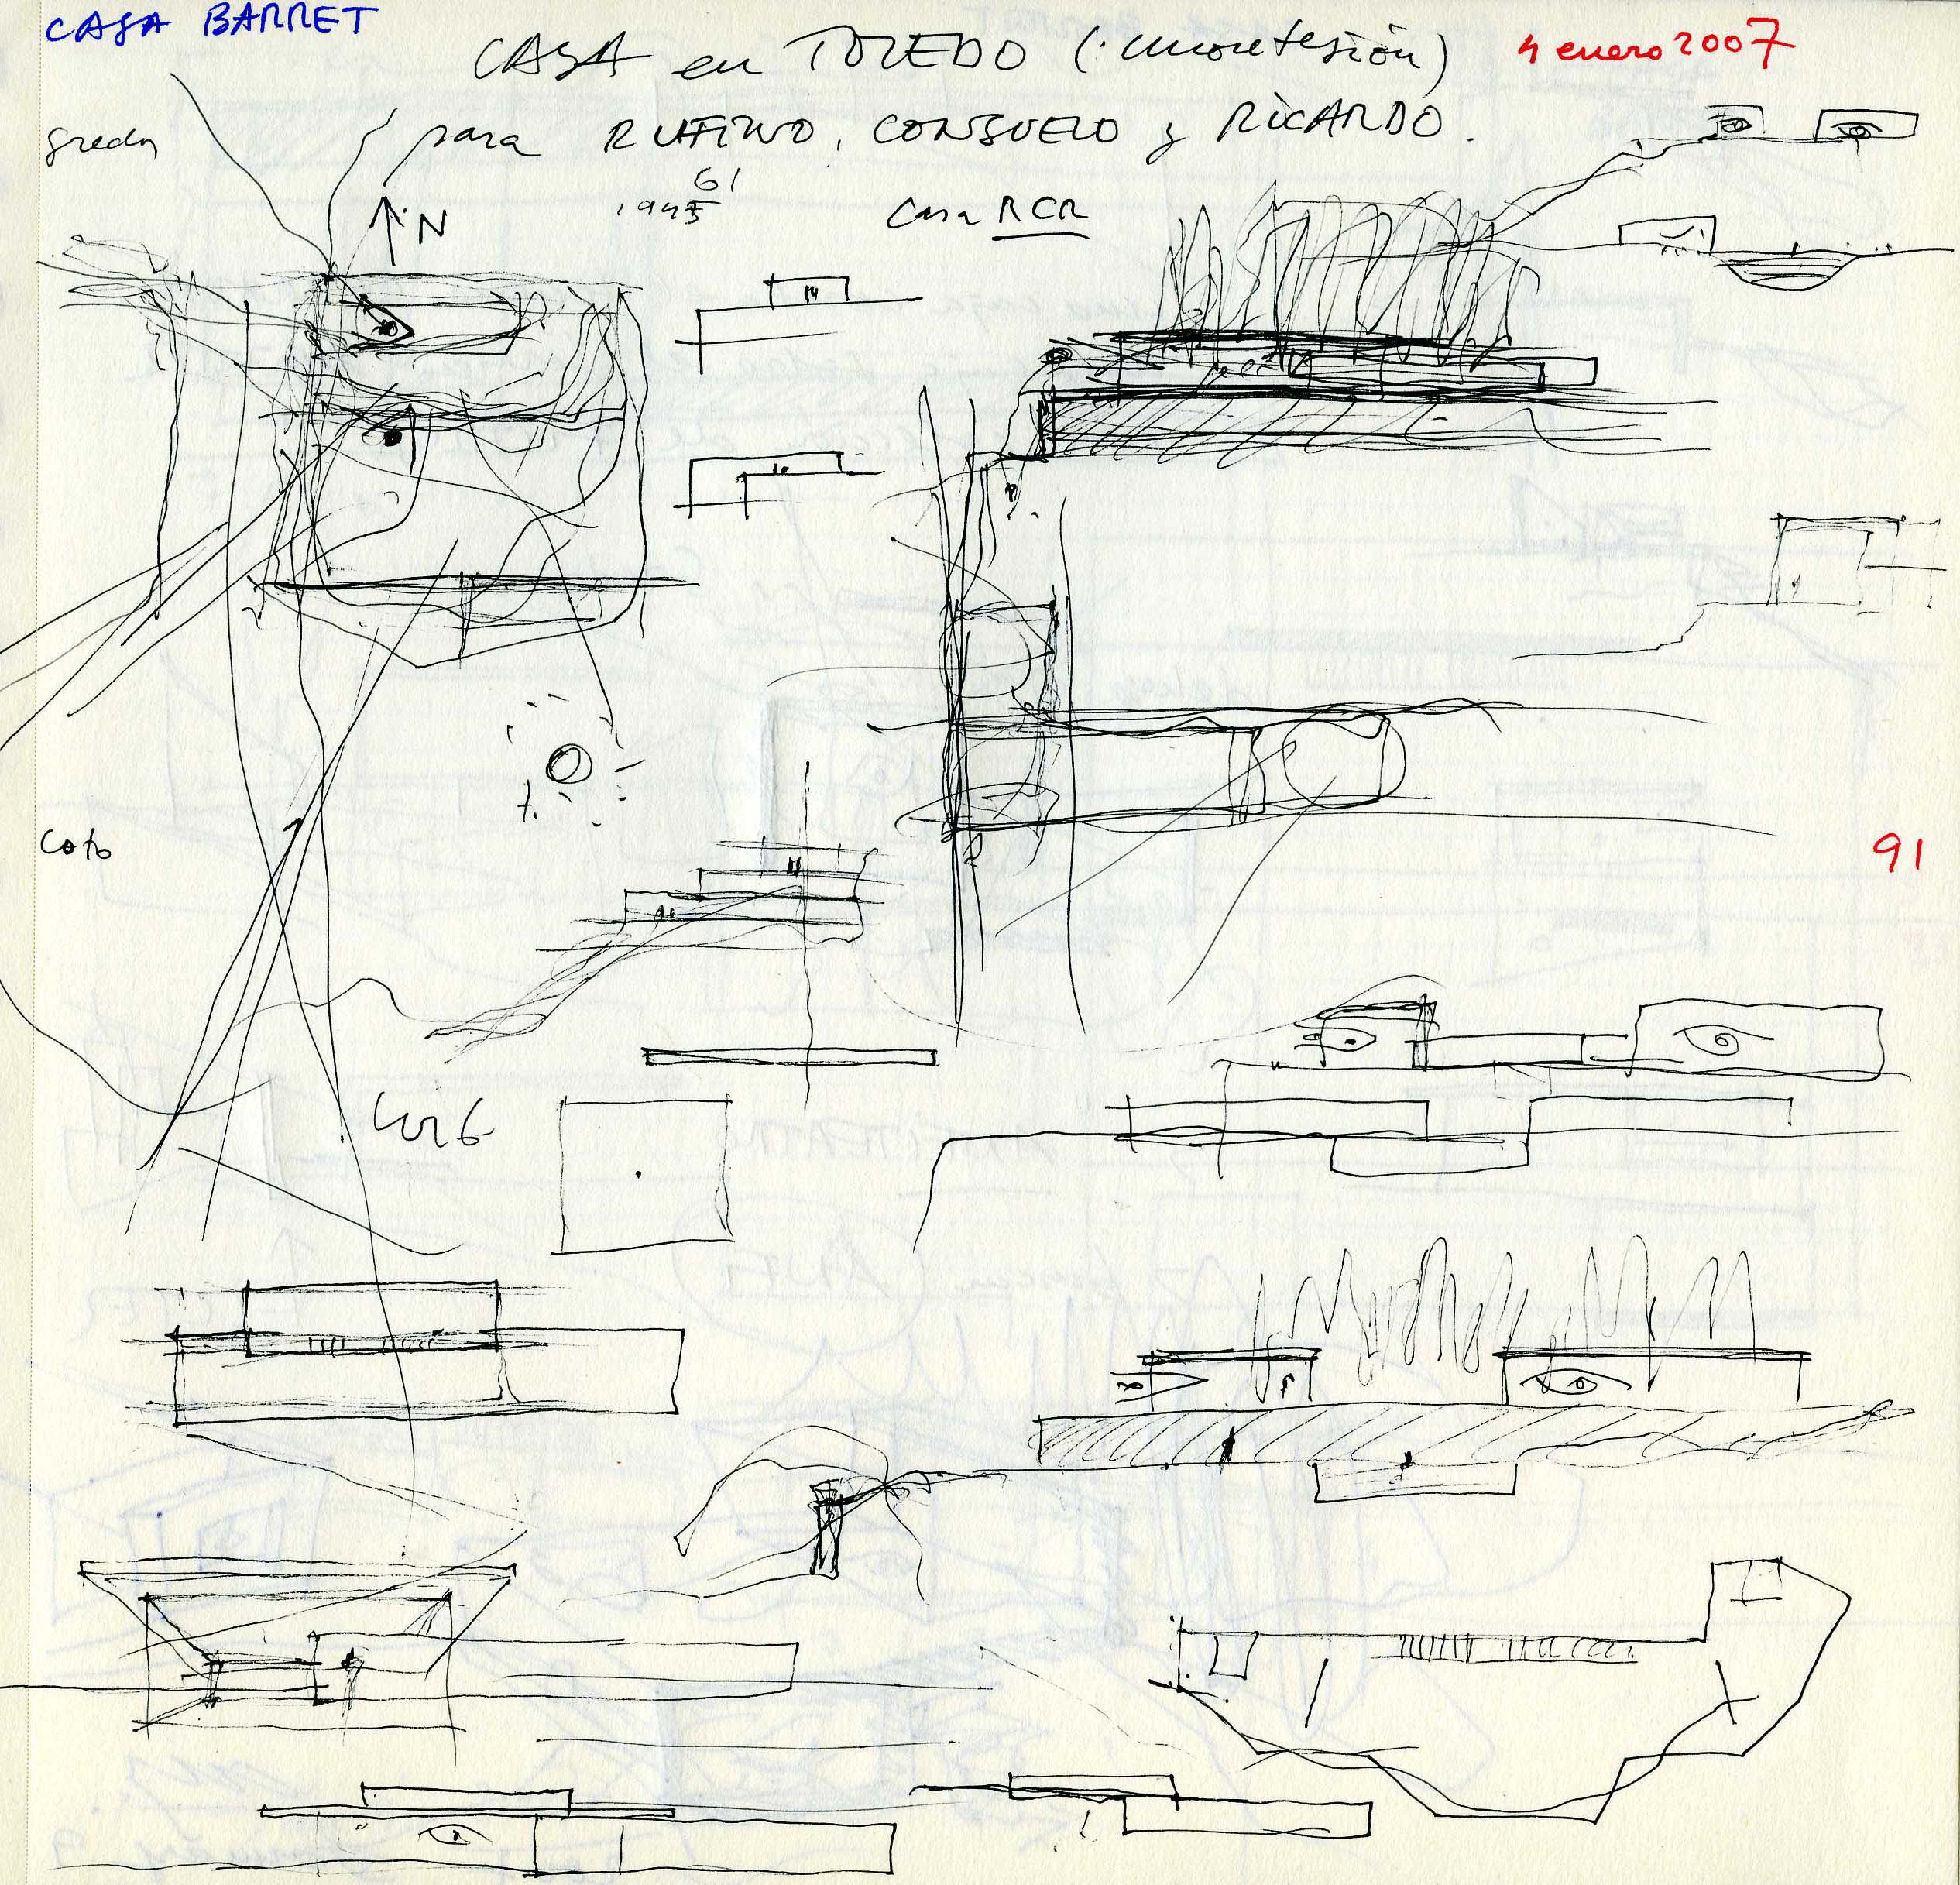 CASA BARRET
CASA en TOLEDO (montesión) 4 enero 2007
para RUFINO, CONSUELO y RICARDO.
gredos
61
1945
N
Casa RCR
coto
91